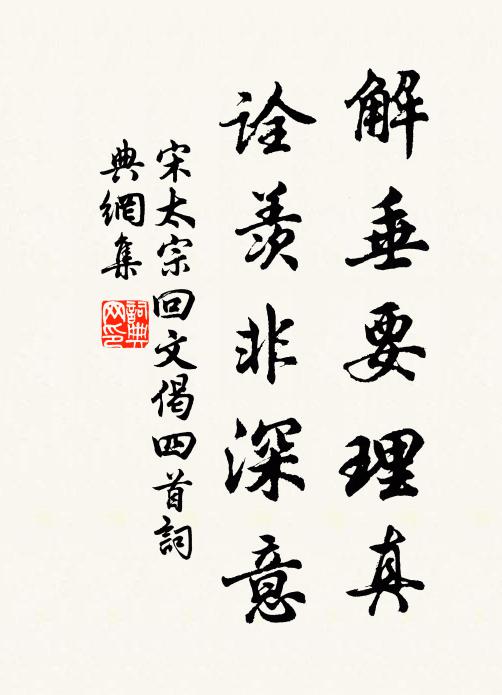 解垂要理真
詮羨非深意
宋太宗回文偈四首詞
典網集
詞典
网印